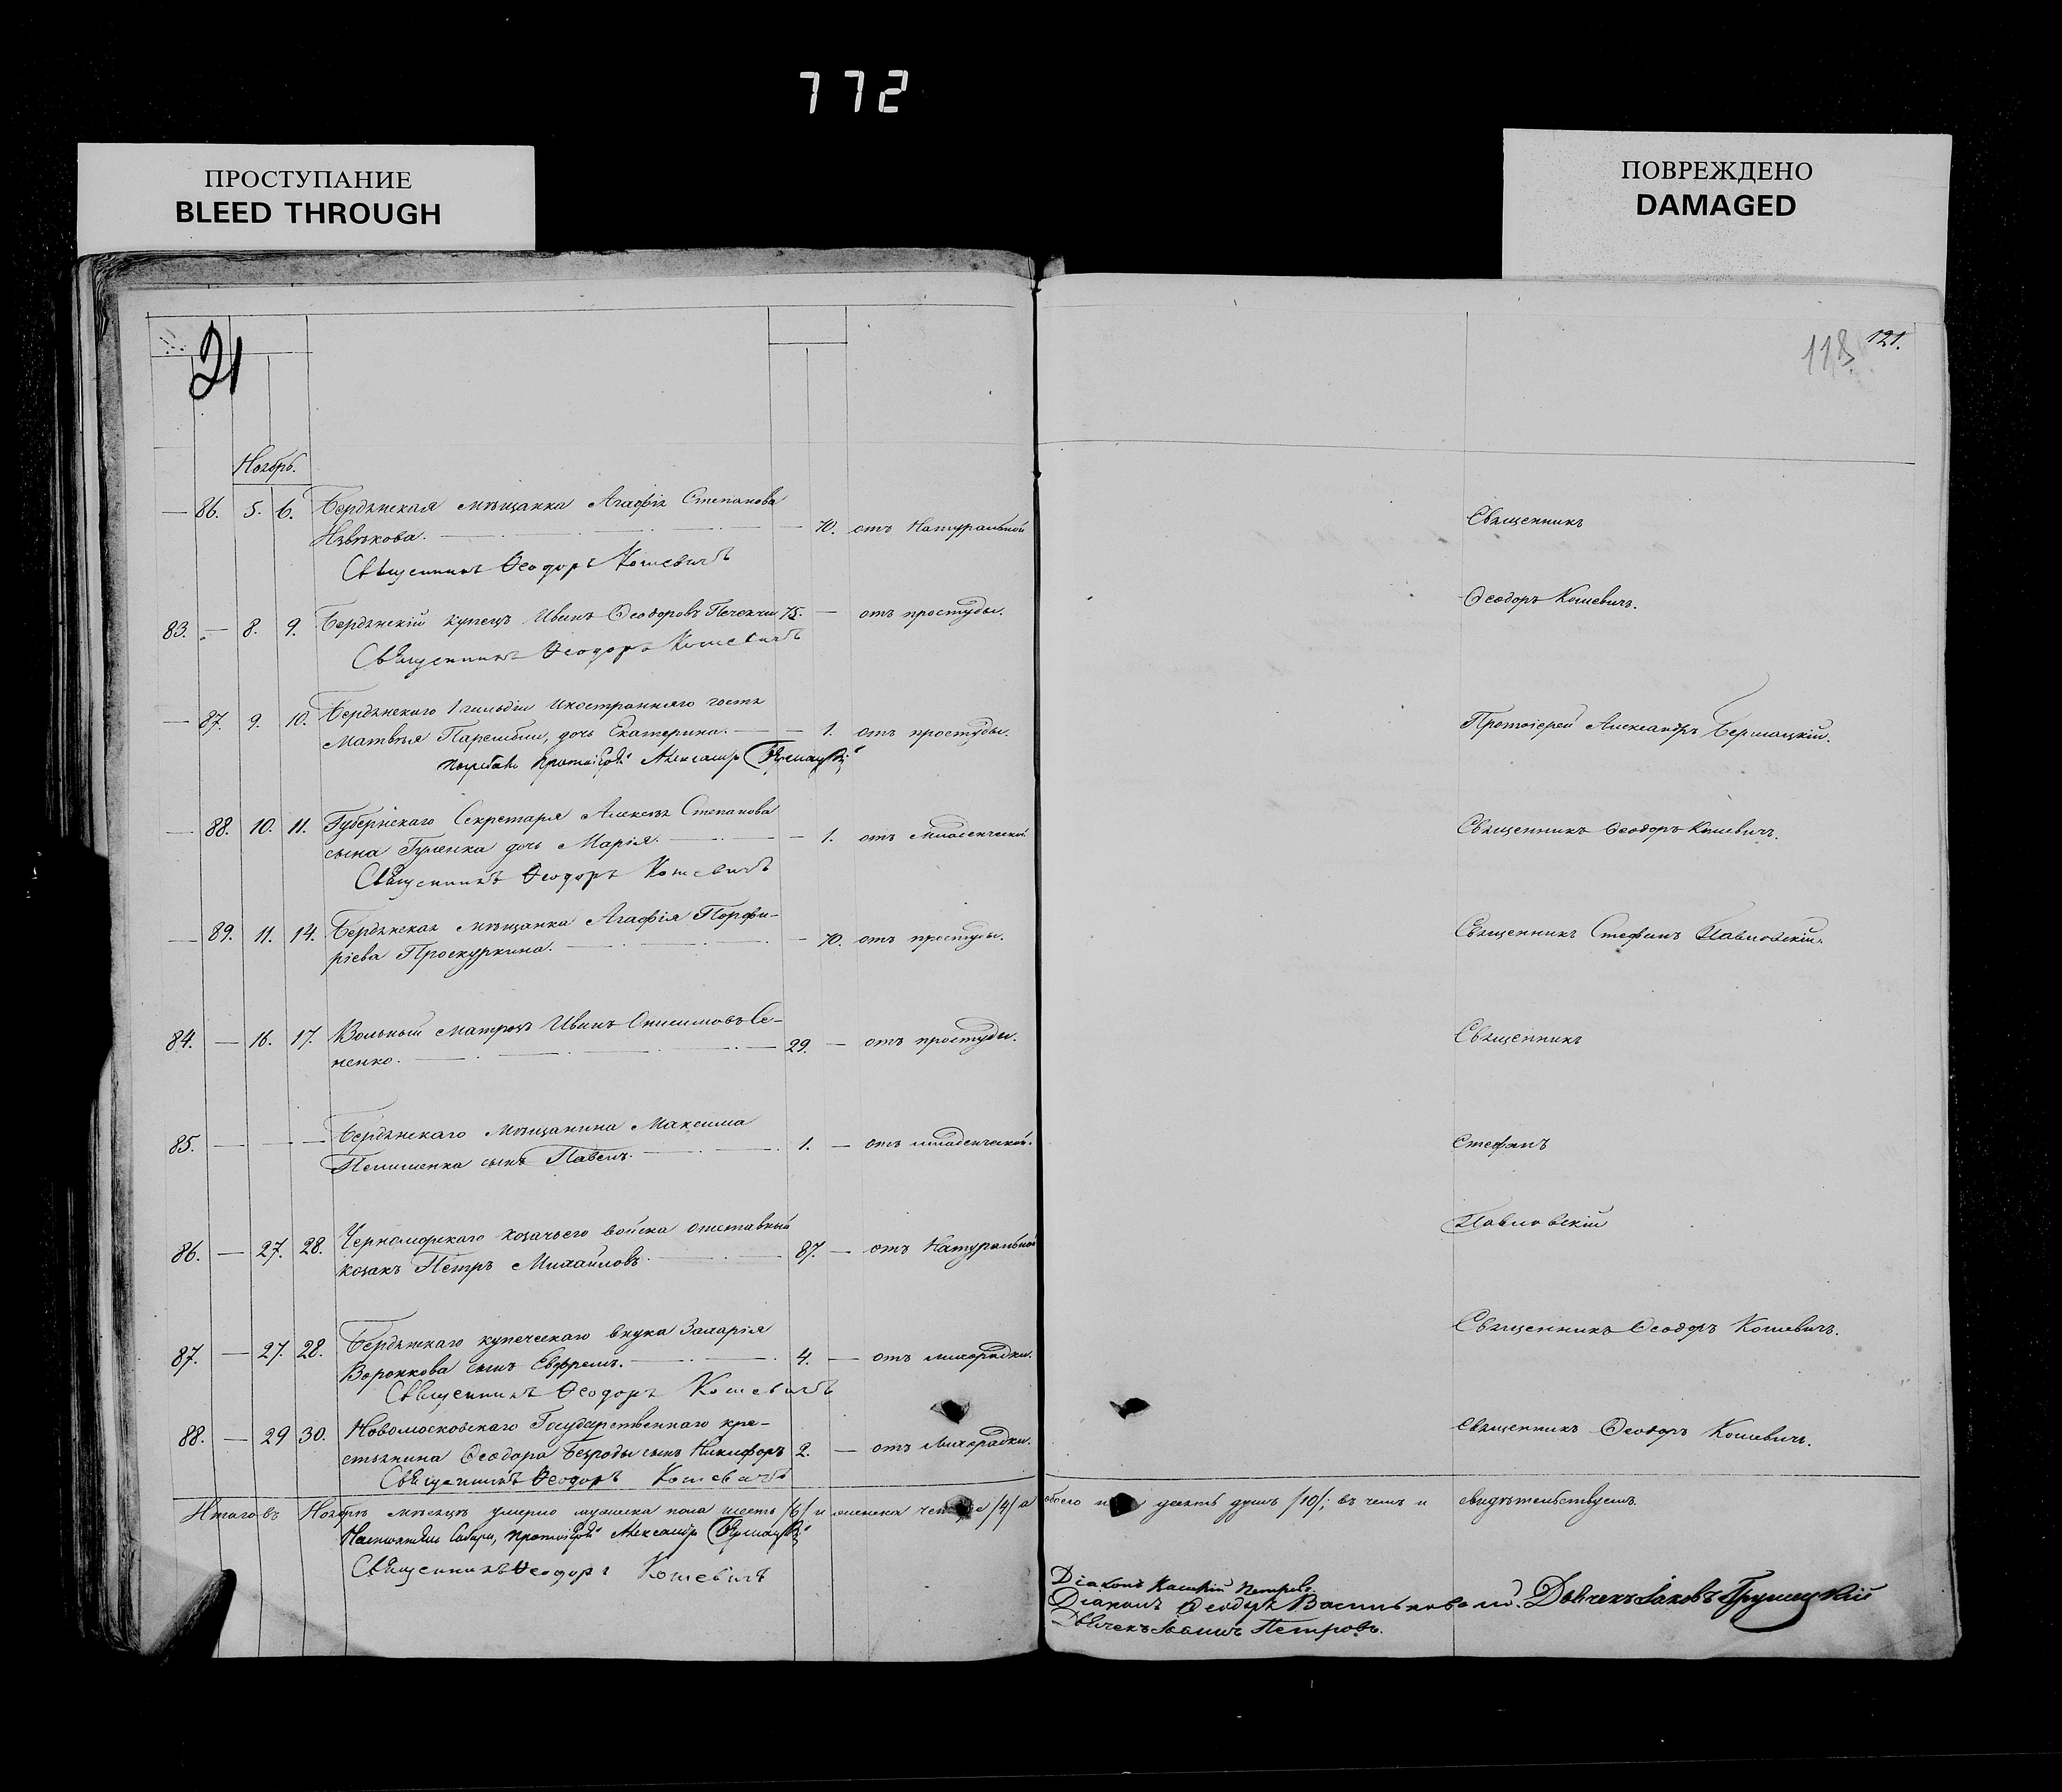 772
ПРОСТУПАНИЕ
BLEED THROUGH
ПОВРЕЖДЕНО
DAMAGED
21
118. 121.
Ноябрь.
— 86. 5. 6. Бердянская мѣщанка Агафія Степанова
— 70. отъ Натуральной
Священникъ
Священникъ Ѳеодоръ Кошевичъ
Ѳеодоръ Кошевичъ.
83. — 8. 9. Бердянскій купецъ Иванъ Ѳеодоровъ 75. — отъ простуды.
Священникъ Ѳеодоръ Кошевичъ
— 87. 9. 10. Бердянскаго 1 гильдіи Иностраннаго гостя
Матвѣя дочь Екатерина. — 1. отъ простуды.
Протоіерей Александръ
погребалъ Протоіерей Александръ
— 88. 10. 11. Губернскаго Секретаря Алексѣя Степанова
сына Гуленка дочь Марія. — 1. отъ младенческой
Священникъ Ѳеодоръ Кошевичъ.
Священникъ Ѳеодоръ Кошевичъ
— 89. 11. 14. Бердянская мѣщанка Агафія Порфи-
ріева Проскуркина. — 70. отъ простуды.
Священникъ Стефанъ Павловскій.
84. — 16. 17. Вольный матросъ Иванъ Онисимовъ Се-
ненко. 29. — отъ простуды.
Священникъ
85. — — — Бердянскаго Мѣщанина Максима
сынъ Павелъ. 1. — отъ младенческой.
Стефанъ
86. — 27. 28. Черноморскаго козачьего войска отставный
козакъ Петръ Михайловъ. 87. — отъ Натуральной
Павловскій
87. — 27. 28. Бердянскаго купеческаго внука Захарія
Воронкова сынъ Ефремъ. 4. — отъ лихорадки.
Священникъ Ѳеодоръ Кошевичъ.
Священникъ Ѳеодоръ Кошевичъ
88. — 29 30. Новомосковскаго Государственнаго кре-
стьянина Ѳеодора Безроды сынъ Никифоръ 2. — отъ Лихорадки.
Священникъ Ѳеодоръ Кошевичъ.
Священникъ Ѳеодоръ Кошевичъ
Итого въ Ноябрѣ мѣсяцѣ умерло мужеска пола шесть /6/ и женска /4/ а обоего десять душъ /10/; въ чемъ и свидѣтельствуемъ.
Настоятель Собора, Протоіерей Александръ
Священникъ Ѳеодоръ Кошевичъ
Діаконъ Петровъ
Діаконъ Ѳеодоръ Дьячекъ Іаковъ Грушецкій
Дьячекъ Іоаннъ Петровъ.